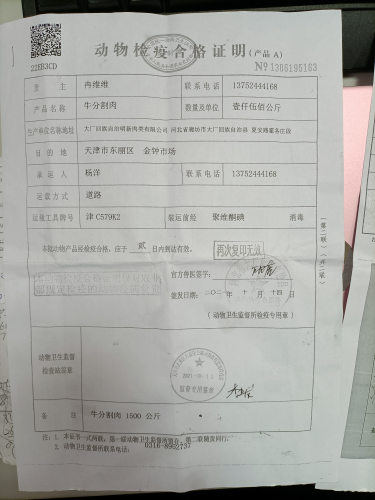 动物检疫合格证明（产品 A）
22EB3CD
№ 1306195163
货 主 冉维维 联系电话 13752444168
产品名称 牛分割肉 数量及单位 壹仟伍佰公斤
生产单位名称地址 大厂回族自治 肉类有限公司 河北省廊坊市大厂回族自治县 夏安路霍各庄段
目的地 天津市东丽区 金钟市场
承运人 杨洋 联系电话 13752444168
运载方式 道路
运载工具牌号 津 C579K2 装运前经 聚维酮碘 消毒
本批动物产品经检疫合格，应于 贰 日内到达有效。
再次复印无效
官方兽医签字：
签发日期： 二〇二一年 十月 十四日
（动物卫生监督所检疫专用章）
动物卫生监督
检查站签章
监督专用签章
备 注 牛分割肉 1500 公斤
注：1. 本证书一式两联，第一联动物卫生监督所留存，第二联随货同行。
2. 动物卫生监督所联系电话：0316-8962737
（第二联）（共二联）